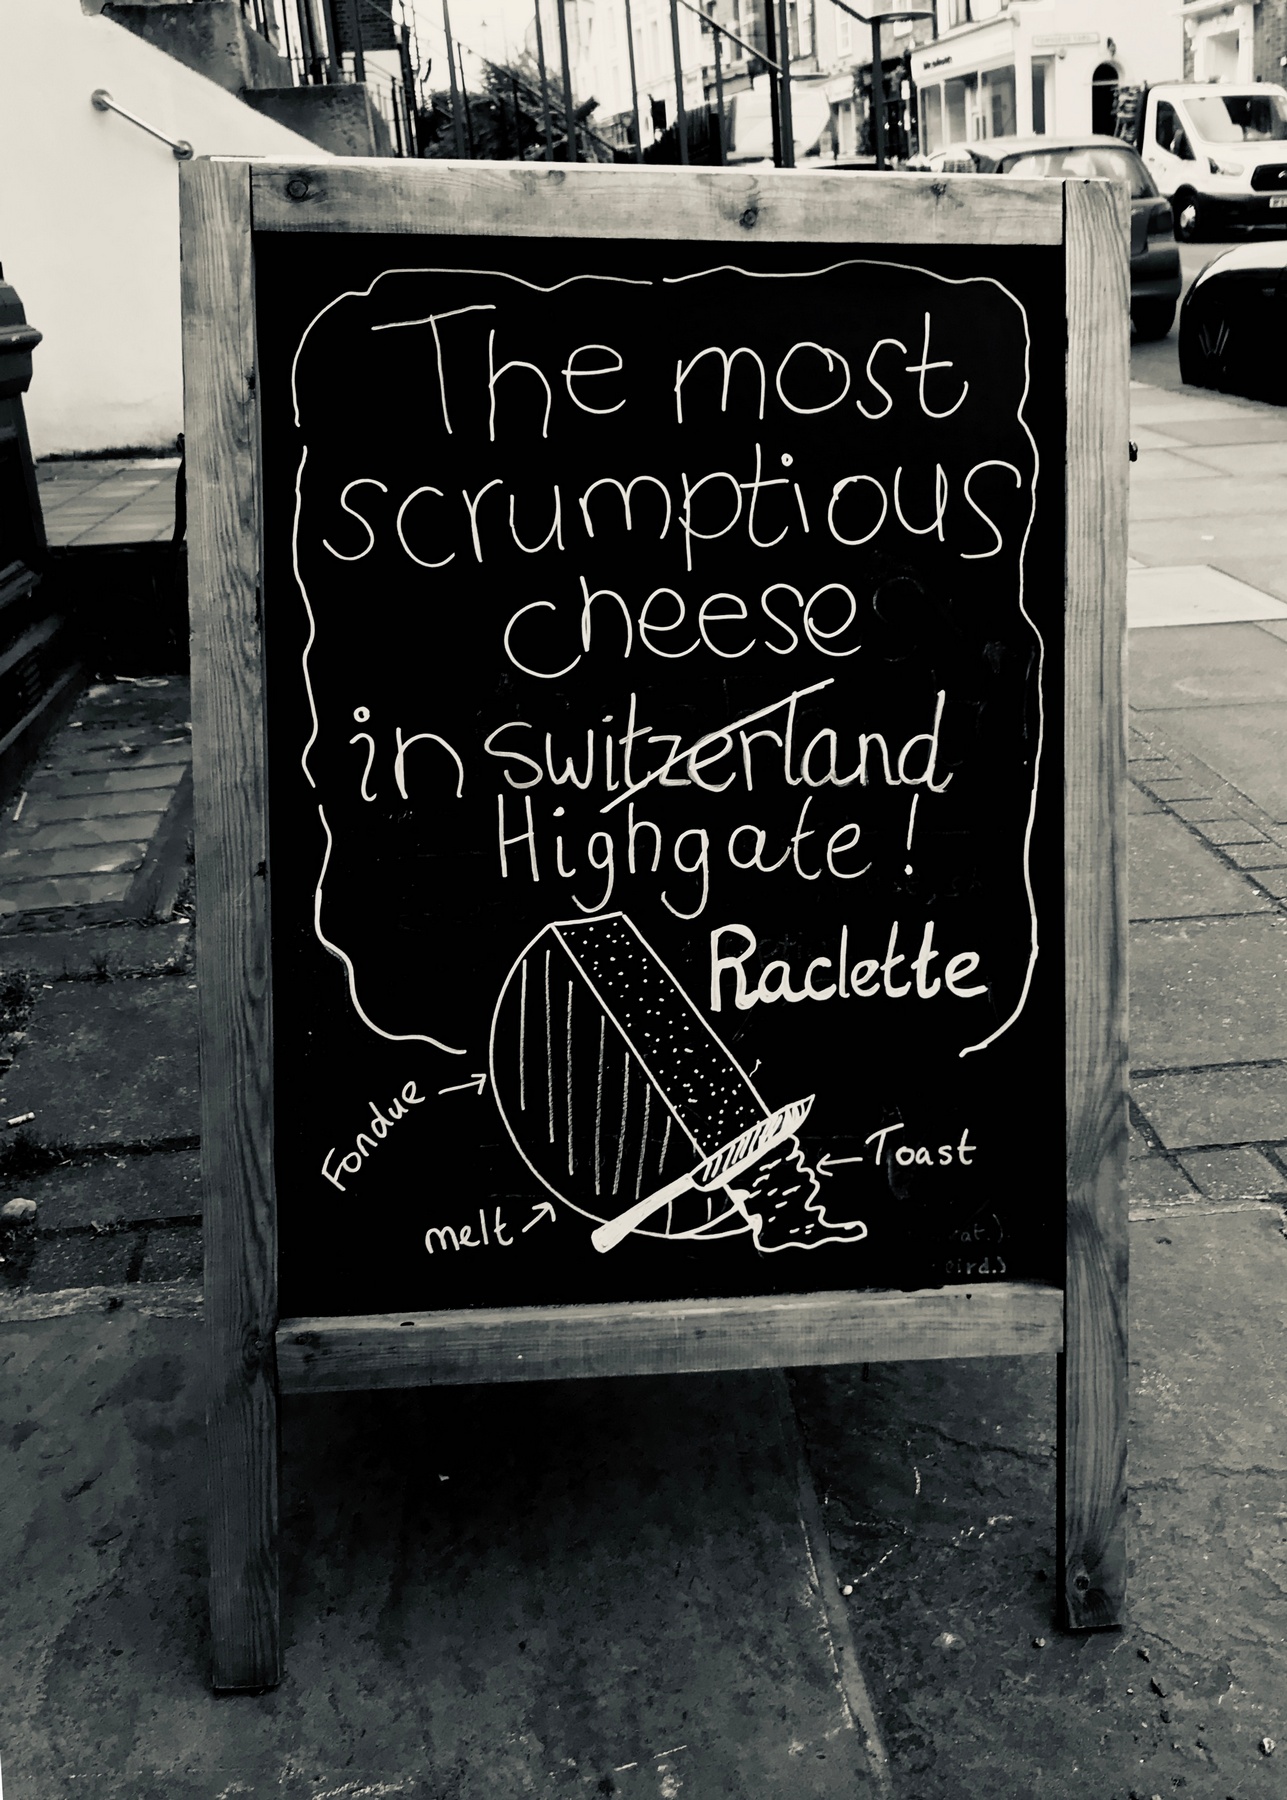 The most
scrumptious
cheese
in Switzerland
Highgate!
Raclette
Fondue
Toast
melt